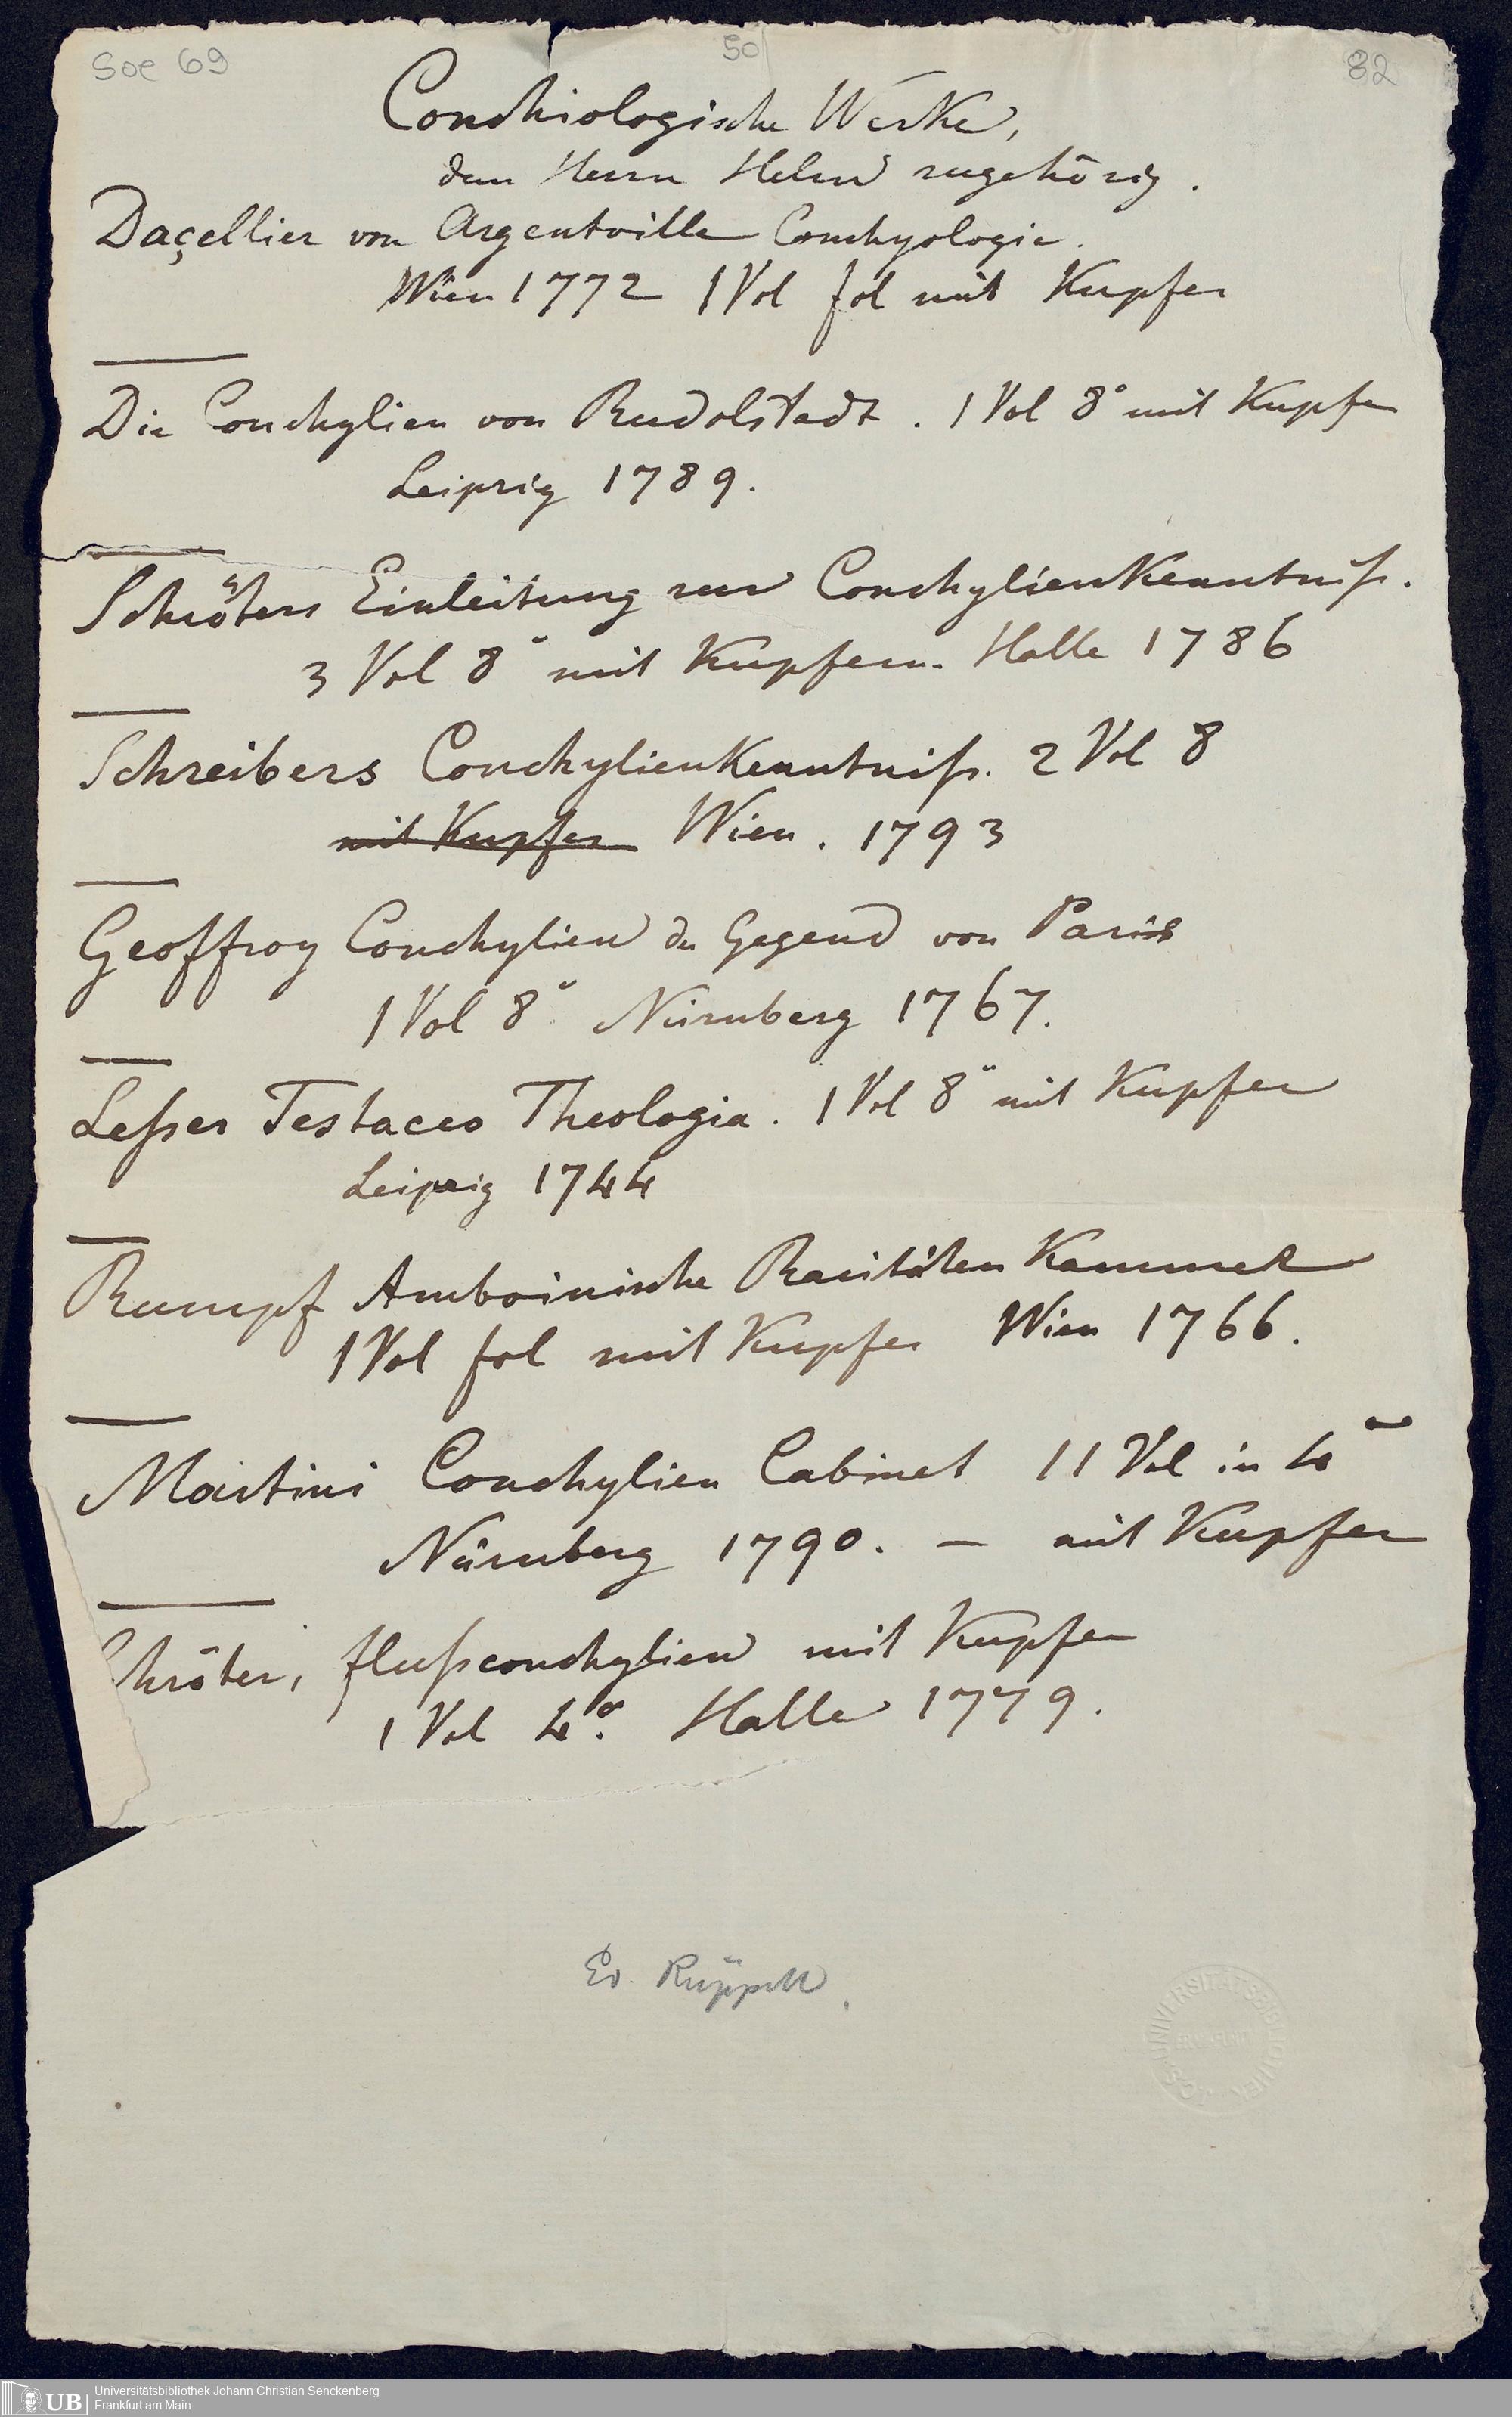 Soe 69 50 82
Conchiologische Werke,
dem Herrn Helm zugehörig.
Daçellier von Argentville Conchyologie.
Wien 1772 1 Vol fol mit Kupfer
Die Conchylien von Rudolstadt. 1 Vol 8° mit Kupfer
Leipzig 1789.
Schröters Einleitung zur Conchylienkenntniß.
3 Vol 8° mit Kupfern. Halle 1786
Schreibers Conchylienkenntniß. 2 Vol 8
mit Kupfer Wien. 1793
Geoffroy Conchylien der Gegend von Paris
1 Vol 8° Nürnberg 1767.
Leßer Testaceo Theologia. 1 Vol 8° mit Kupfer
Leipzig 1744
Rumpf Amboinische Raritäten Kammer
1 Vol fol mit Kupfer Wien 1766.
Martini Conchylien Cabinet 11 Vol in 4°
Nürnberg 1790. — mit Kupfer
chröter, flußconchylien mit Kupfer
1 Vol 4°. Halle 1779.
Ed. Rüppell.
UB
Universitätsbibliothek Johann Christian Senckenberg
Frankfurt am Main